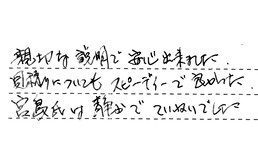 親切な説明で安心出来ました.
見積りについてもスピーディーで良かった.
宮島氏は静かでていねいでした